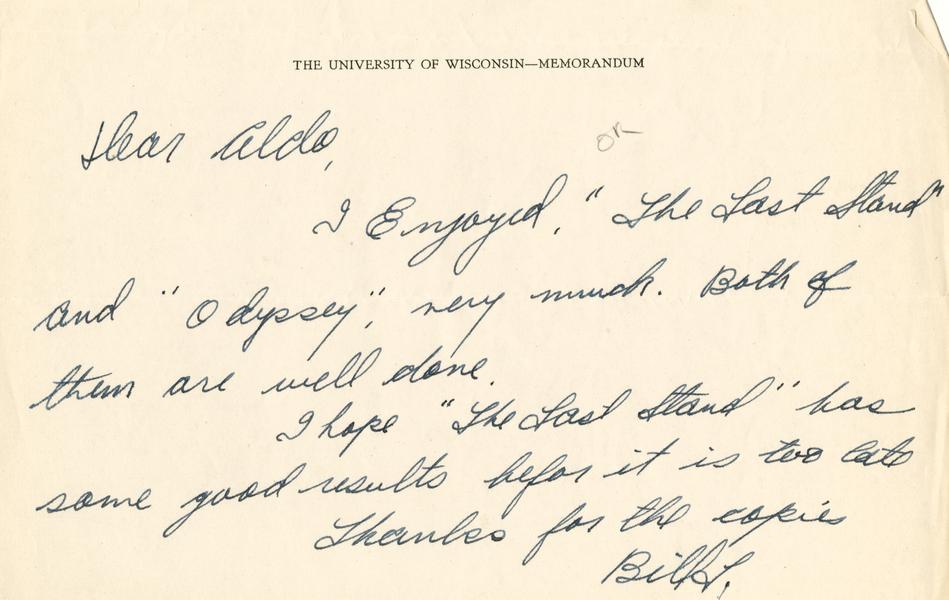 THE UNIVERSITY OF WISCONSIN—MEMORANDUM
or
Dear Aldo,
I Enjoyed, "The Last Stand"
and "Odyssey", very much. Both of
them are well done.
I hope "The Last Stand" has
some good results befor it is too late
Thanks for the copies
Bill